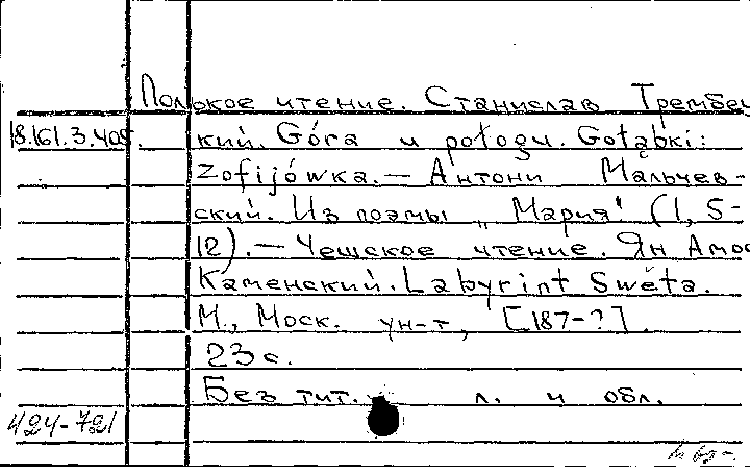 Полькое чтение. Станислав Трембец
18.161.3.408. кий. Góra u połogu. Gołąbki:
Zofijówka. — Антони Мальчев-
ский. Из поэмы „Мария" (1, 5-
12). — Чешское чтение. Ян Амос
Каменский. Labyrint Swěta.
М., Моск. ун-т, [187-?].
23 с.
Без тит. л. и обл.
424-721